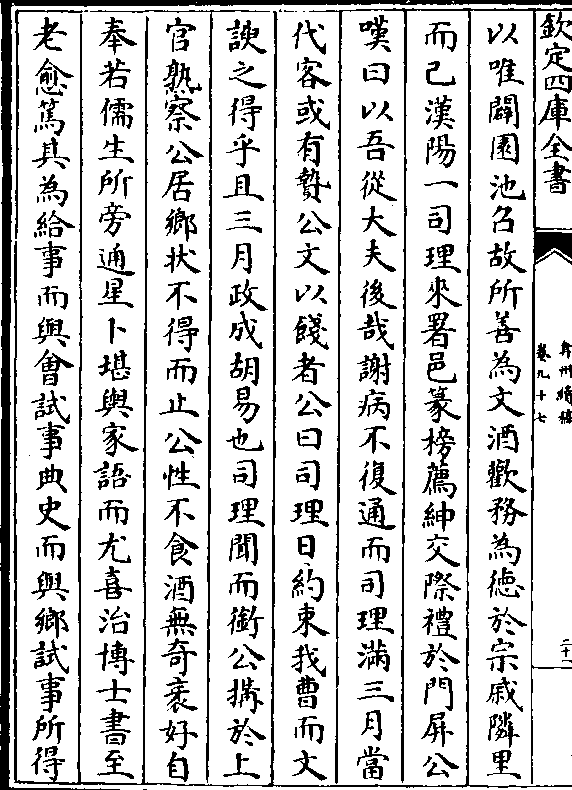 欽定四庫全書
弇州續稿
卷九十七
二十一
以唯闢園池召故所善為文酒歡務為徳於宗戚隣里
而已漢陽一司理來署邑篆榜薦紳交際禮於門屏公
嘆曰以吾從大夫後哉謝病不復通而司理滿三月當
代客或有贄公文以餞者公曰司理日約束我曹而文
諛之得乎且三月政成胡易也司理聞而銜公搆於上
官熟察公居鄉狀不得而止公性不食酒無奇衺好自
奉若儒生所旁通星卜堪輿家語而尤喜治博士書至
老愈篤其為給事而與會試事典史而與鄉試事所得